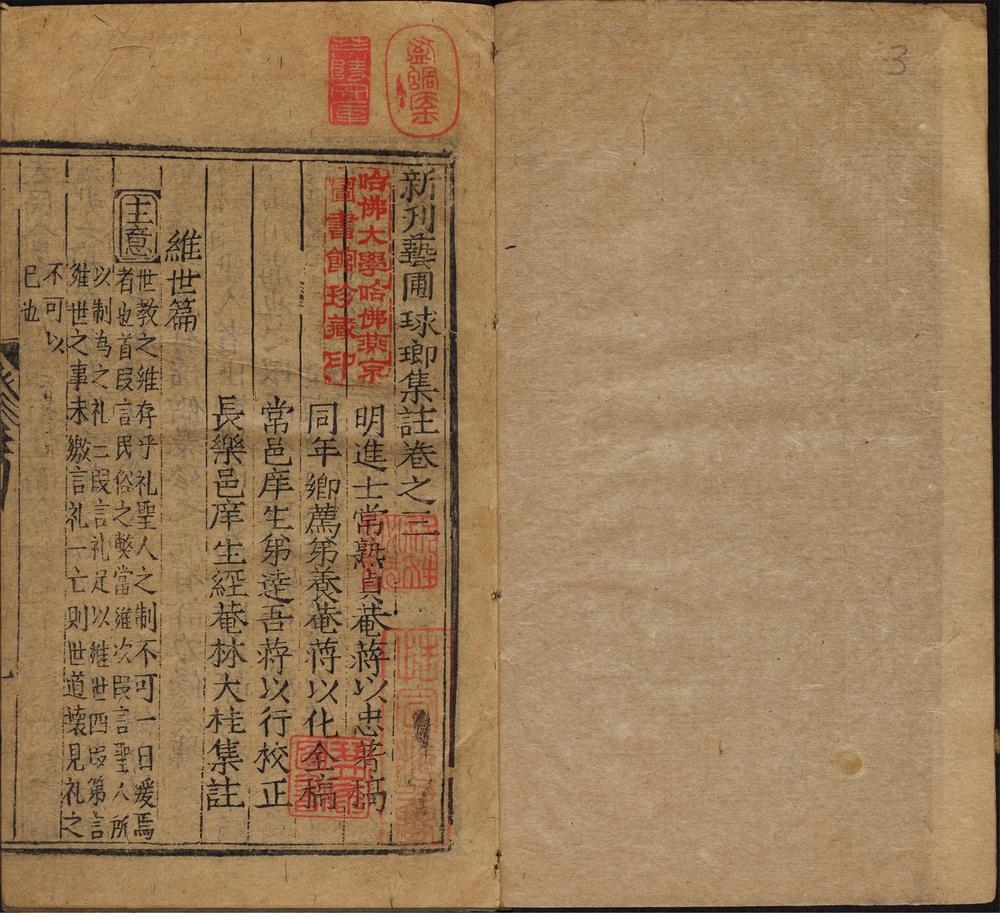 3
新刋藝圃球瑯集註卷之三
明進士常熟貞菴蔣以忠著稿
同年鄉薦第養菴蔣以化仝稿
常邑庠生第逵吾蔣以行校正
長樂邑庠生經菴林大桂集註
維世篇
主意
世教之維存乎礼聖人之制不可一日廢焉
者也首叚言民俗之獘當維次叚言聖人所
以制為之礼三叚言礼足以維世四叚第言
維世之事未繳言礼一亡則世道壊見礼之
不可以
已也
哈佛大學哈佛燕京
圖書館珍藏印